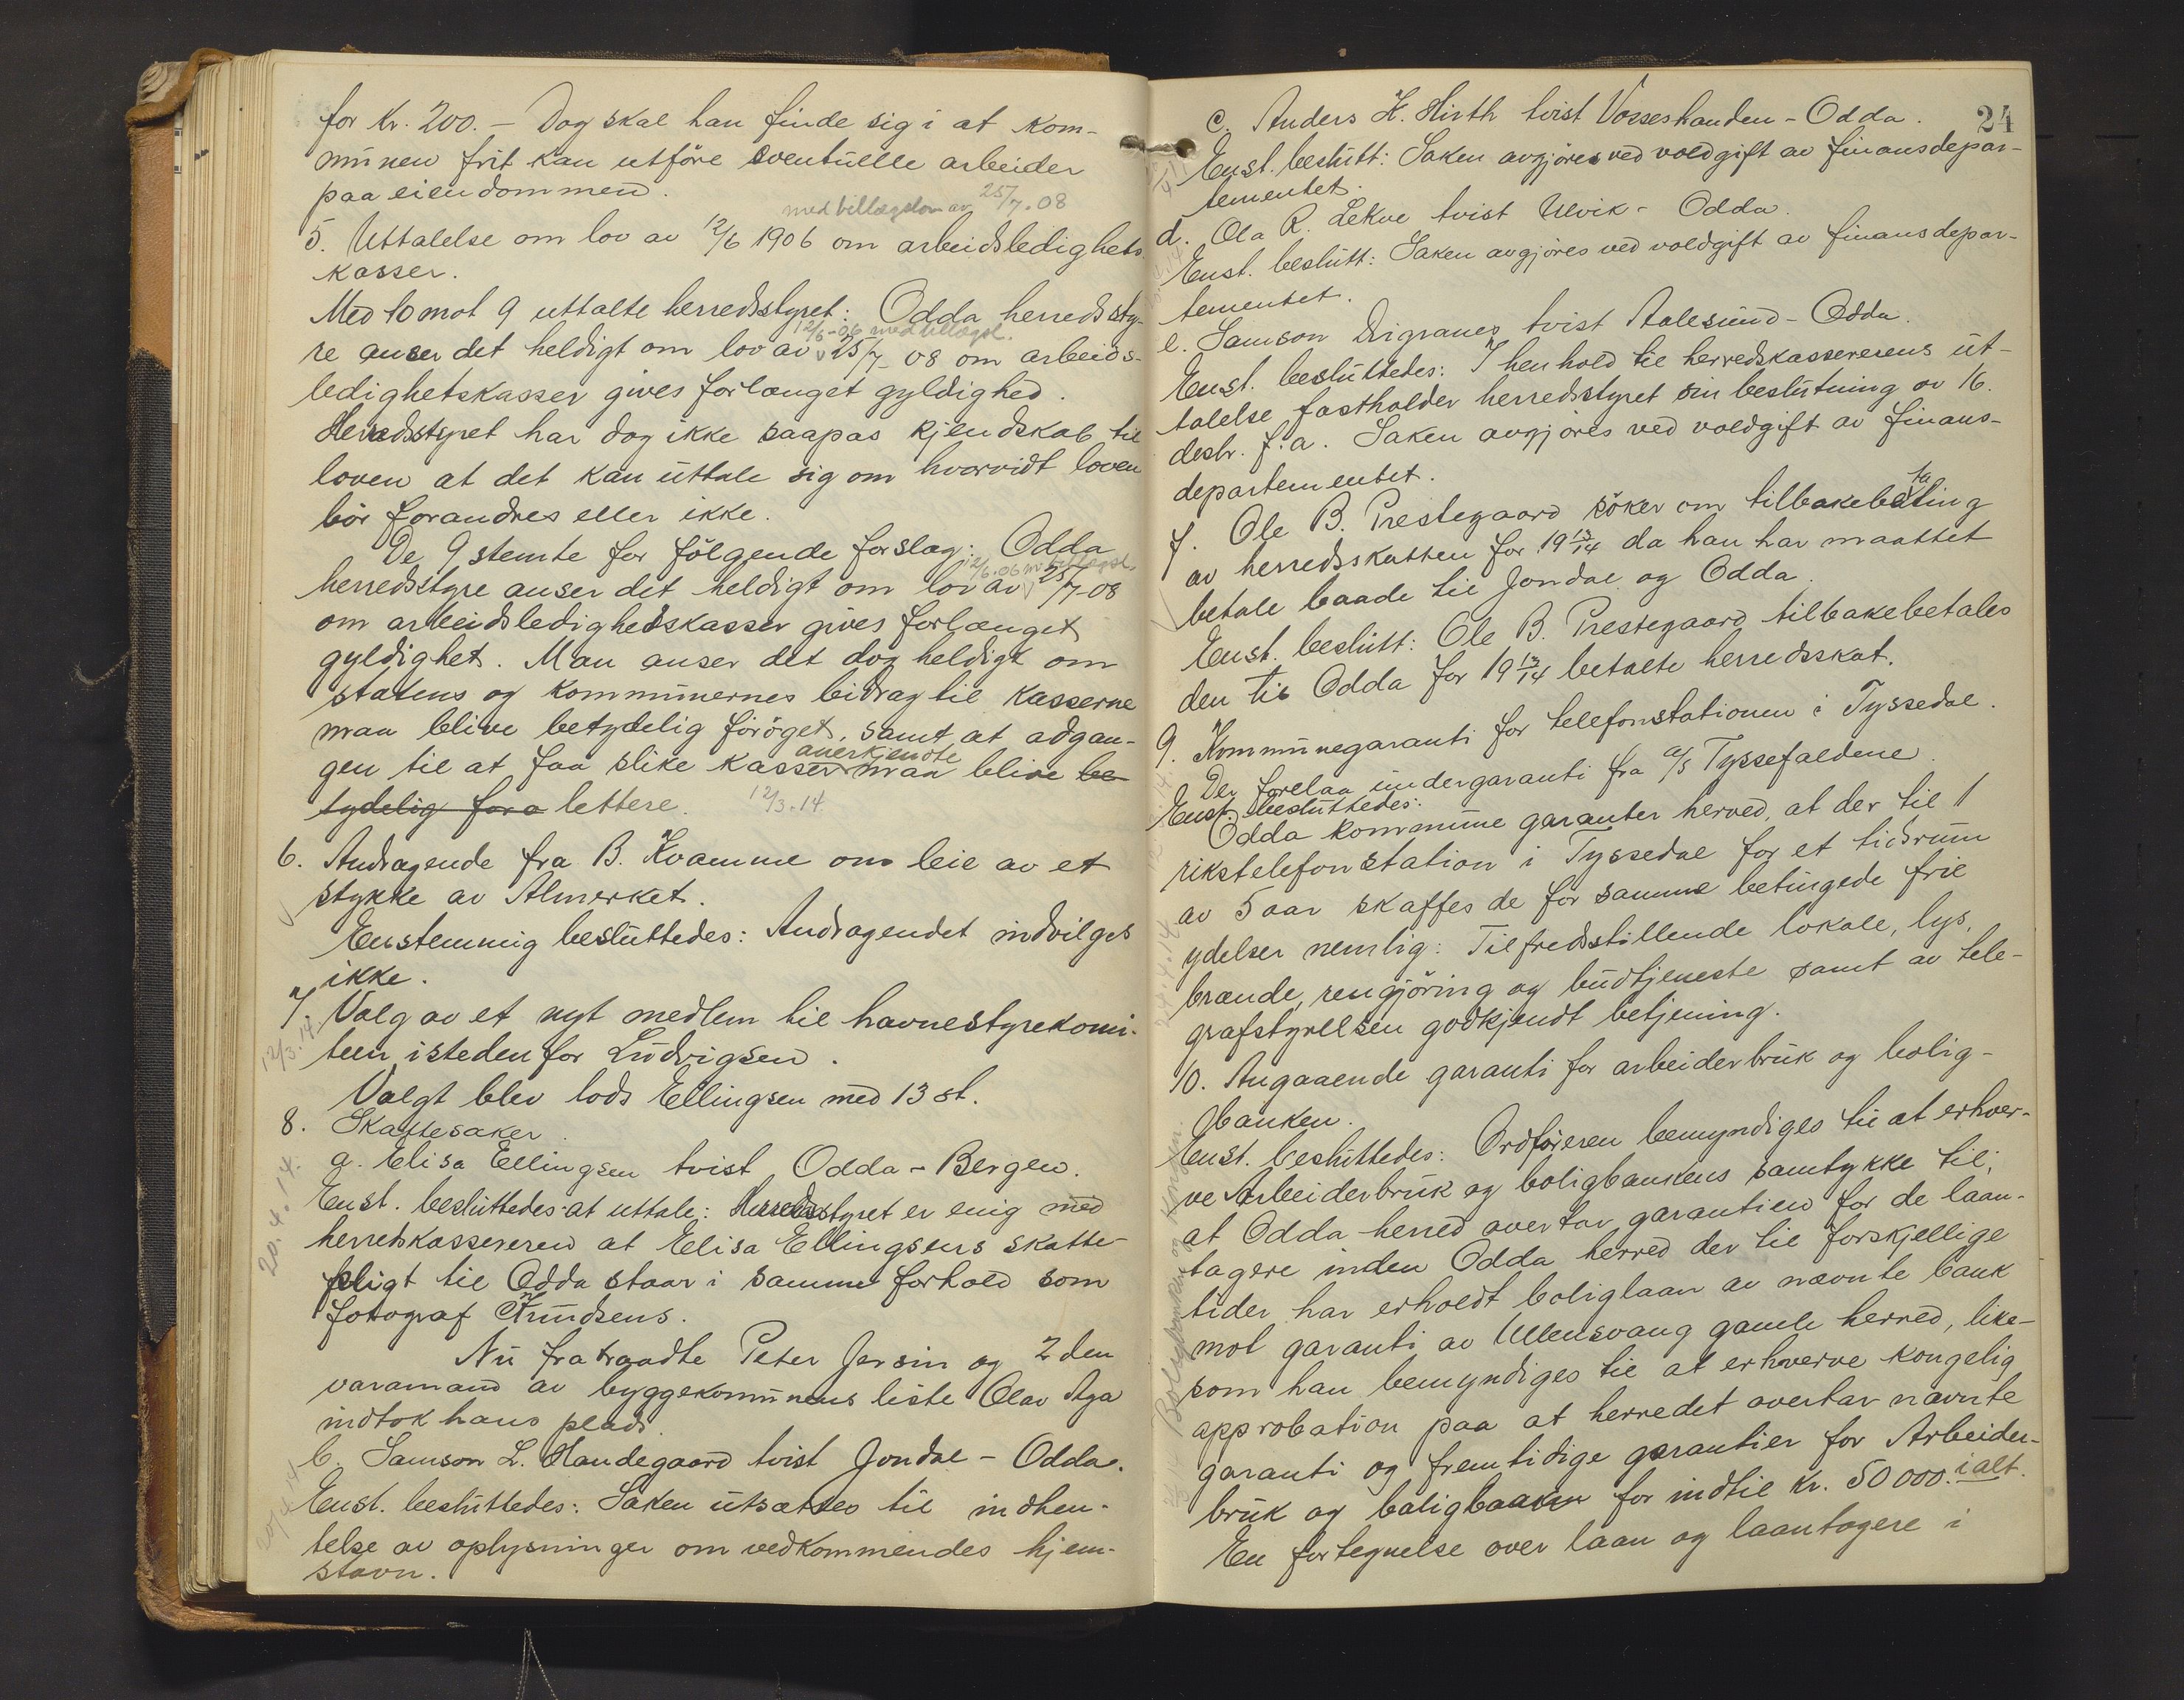 for Kr. 200.- Dog skal han finde sig i at kom-
munen frit kan utföre eventuelle arbeider
paa eiendommen.
med tillægslov av 25/7.08
5. Uttalelse om lov av 12/6 1906 om arbeidsledighets
kasser.
Med 10 mot 9 uttalte herredsstyret: Odda herredssty-
12/6-06 med tillægsl.
re anser det heldigt om lov av 25/7-08 om arbeids-
ledighetskasser gives forlænget gyldighed.
Herredsstyret har dog ikke saapas kjendskab til
loven at det kan uttale sig om hvorvidt loven
bör forandres eller ikke.
De 9 stemte for fölgende forslag: Odda
12/6.06 m. tillægsl.
herredsstyre anser det heldigt om lov av 25/7-08
om arbeidsledighedskasser gives forlænget
gyldighet. Man anser det dog heldigt om
statens og kommunernes bidrag til kasserne
maa blive betydelig föröget, samt at adgan-
anerkjendte
gen til at faa slike kasser maa blive be-
tydelig fora lettere. 12/3.14.
6. Andragende fra B. Kvamme om leie av et
stykke av Almerket.
Enstemmig besluttedes: Andragendet indvilges
ikke.
7. Valg av et nyt medlem til havnestyrekomi-
12/3.14.
teen, istedenfor Ludvigsen.
Valgt blev lods Ellingsen med 13 st.
8. Skattesaker.
a. Elisa Ellingsen tvist Odda - Bergen.
20.4.14.
Enst. besluttedes at uttale: Herredsstyret er enig med
herredskassereren at Elisa Ellingsens skatte-
pligt til Odda staar i samme forhold som
fotograf Knudsens.
Nu fratraadte Peter Jersin og 2den
varamand av byggekomunens liste Olav Aga
indtok hans plads.
b. Samson L. Handegaard tvist Jondal - Odda.
Enst. besluttedes: Saken utsættes til indhen-
telse av oplysninger om vedkommendes hjem-
stavn.
24
c. Anders K. Hirth tvist Vossestranden - Odda.
Enst. beslutt: Saken avgjöres ved voldgift av finansdepar-
tementet.
d. Ola R. Lekve tvist Ulvik - Odda.
Enst. beslutt: Saken avgjöres ved voldgift av finansdepar-
tementet.
e. Samson Digranes tvist Aalesund - Odda.
Enst. besluttedes: I henhold til herredskassererens ut-
talelse fastholder herredsstyret sin beslutning av 16.
desbr. f.a. Saken avgjöres ved voldgift av finans-
departementet.
f. Ole B. Prestegaard söker om tilbakebetaling
av herredsskatten for 1913/14 da han har maattet
betale baade til Jondal og Odda.
Enst. beslutt: Ole B. Prestegaard tilbakebetales
den til Odda for 1913/14 betalte herredsskat.
9. Kommunegaranti for telefonstationen i Tyssedal.
Der forelaa undergaranti fra a/s Tyssefaldene.
Enst. besluttedes:
Odda kommune garanter herved, at der til 1
rikstelefonstation i Tyssedal for et tidsrum
av 5 aar skaffes de for samme betingede frie
24.4.14
ydelser nemlig: Tilfredsstillende lokale, lys,
brænde, rengjöring og budtjeneste samt av tele-
grafstyrelsen godkjendt betjening.
10. Angaaende garanti for arbeiderbruk og bolig-
banken.
Enst. besluttedes: Ordföreren bemyndiges til at erhver-
ve Arbeiderbruk og boligbankens samtykke til,
at Odda herred overtar garantien for de laan-
tagere inden Odda herred der til forskjellige
tider har erholdt boliglaan av nævnte bank
mot garanti av Ullensvang gamle herred, like-
som han bemyndiges til at erhverve kongelig
approbation paa at herredet overtar nævnte
garanti og fremtidige garantier for Arbeider-
bruk og boligbanken for indtil Kr. 50 000. ialt.
En fortegnelse over laan og laantagere i